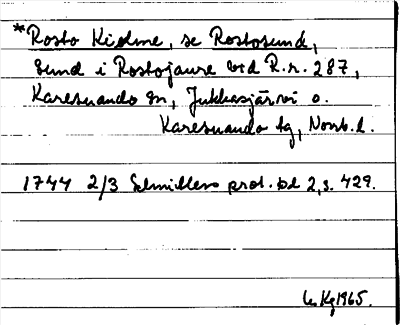 *Rosto Kielme, se Rostosund,
Sund i Rostojaure vid R.r. 287,
Karesuando sn, Jukkasjärvi o.
Karesuando tg, Norrb. l.
1744 2/3 Schnitlers prot. bd 2, s. 429.
Kg 1965.